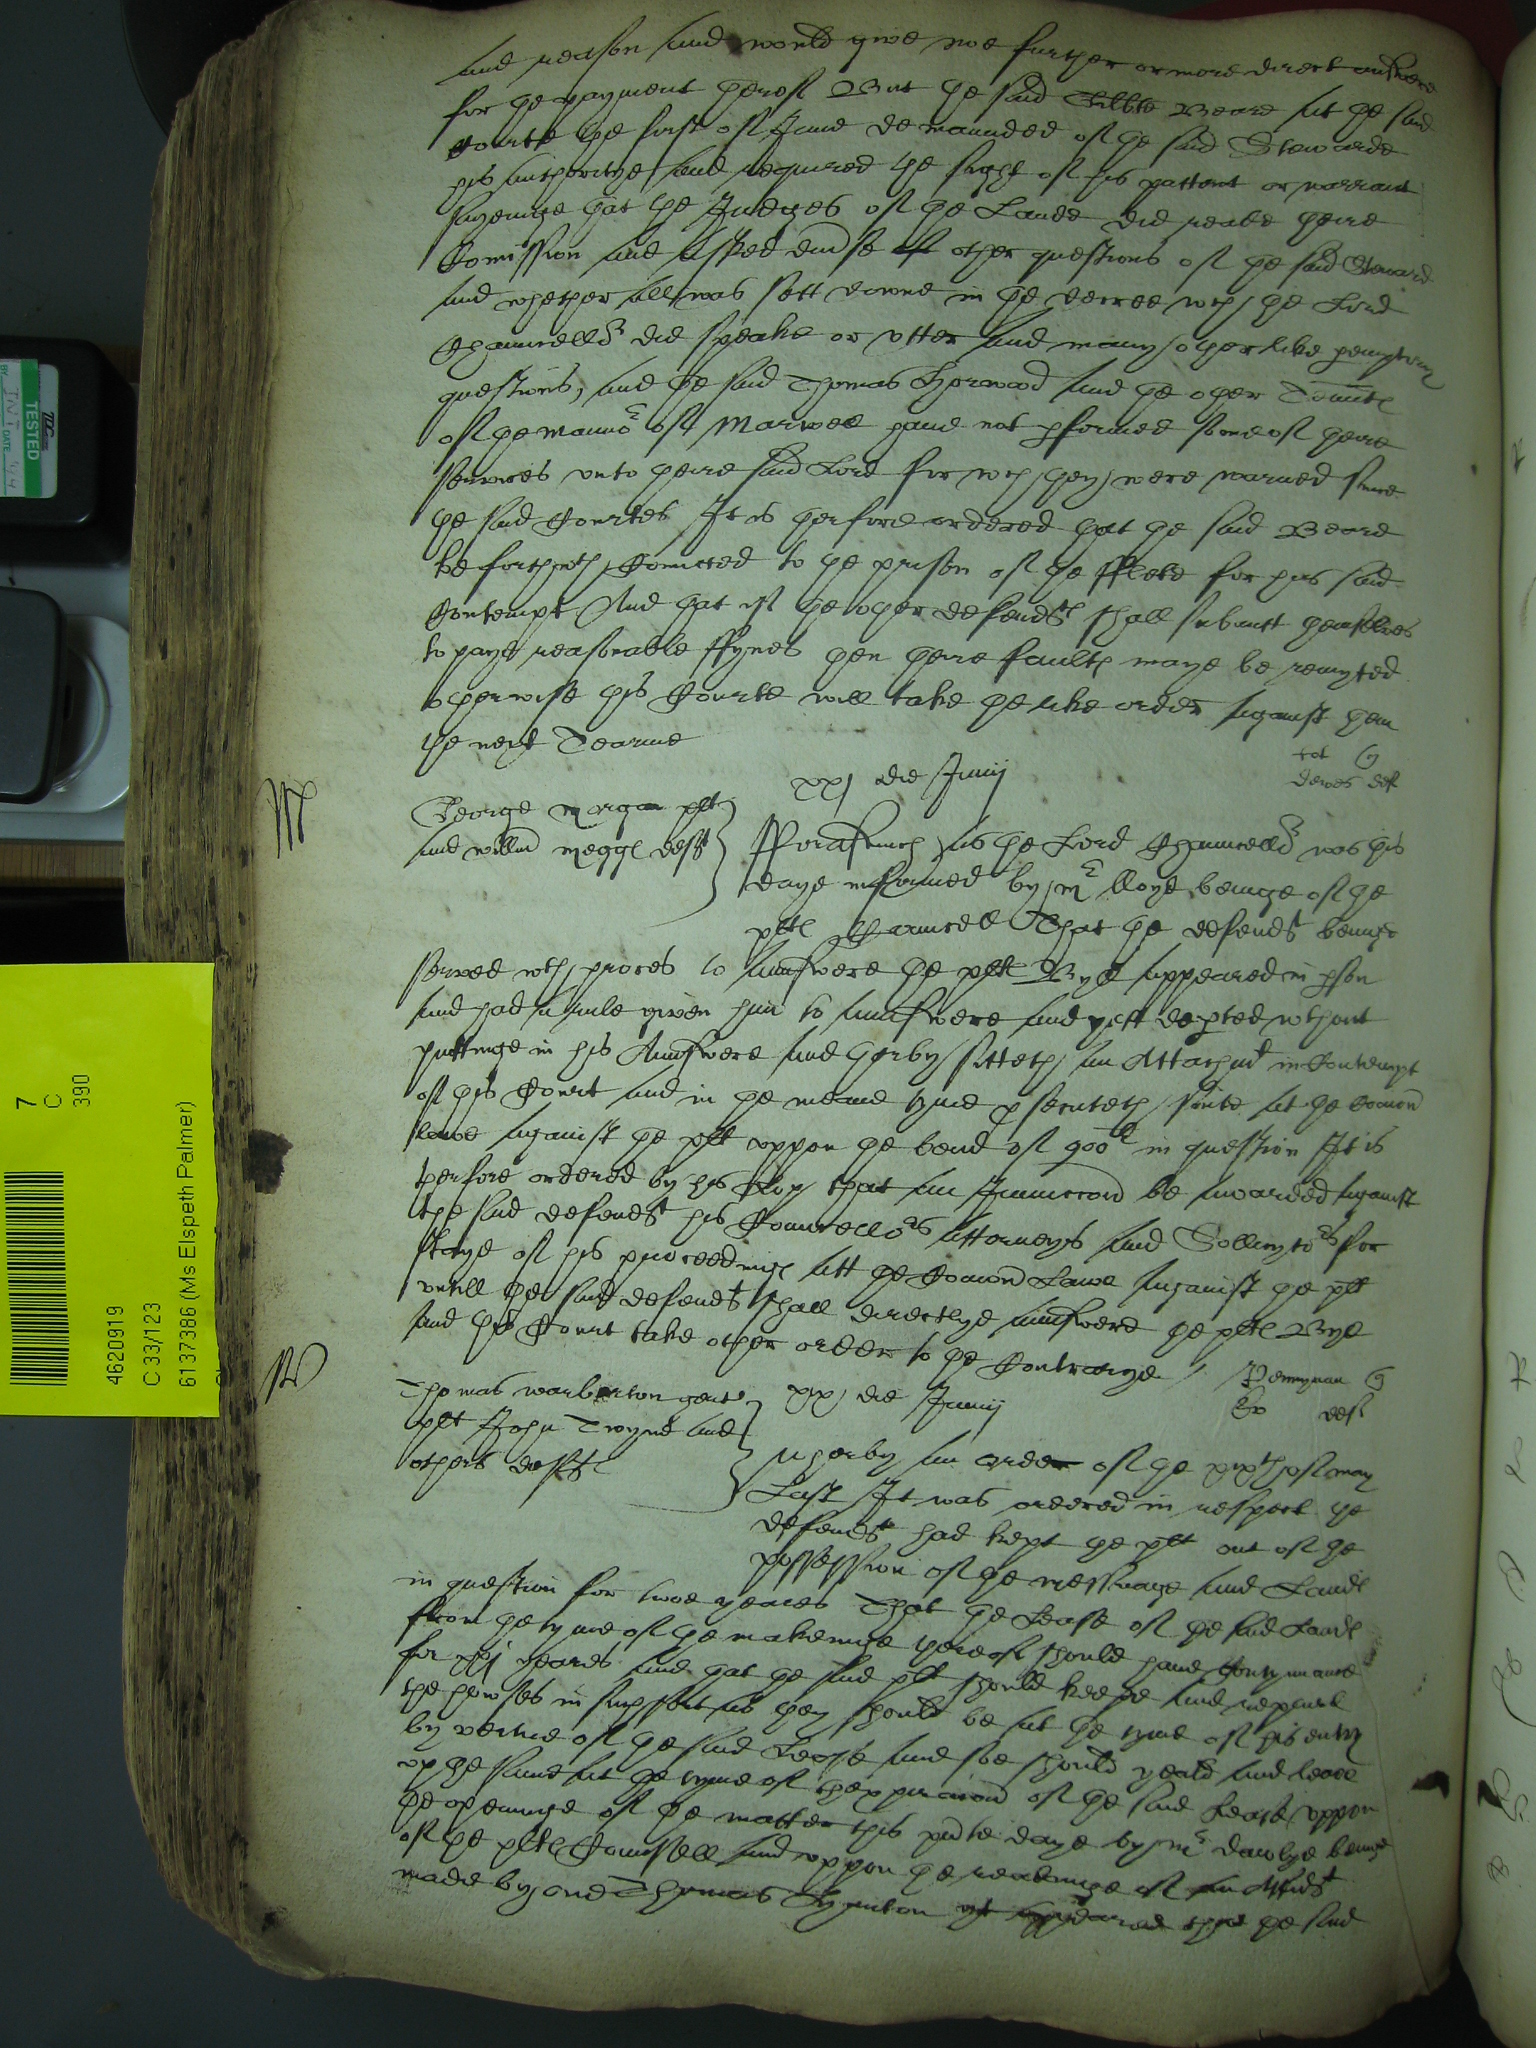 and reason and would give noe further or more direct answere
for the payment therof But the said Beare at the said
Courte the first of June demaunded of the said Stewarde
his authoritye and required the sight of his pattent or warrant
sayenge that the Judges of the Lande did make theire
Comission and asked other questions of the said Steward
and whether all was sett downe in the decree wch the Lord
Chauncellor did speake or utter and many other like
questions, and the said Thomas Horwood and the other Tenntes
of the mannor of Marwell have not pformed some of theire
services unto theire said Lord for wch they were warned since
the said Courtes It is therfore ordered that the said Beare
be forthwth Comitted to the prison of the ffleete for his said
Contempt And that if the other defendtes shall submitt themselves
to paye reasonable ffynes then theire faultes maye be remytted
otherwise this Courte will take the like order against them
the next Tearme
xxj die Junij
George Morgan plt
and Willm Megges deft
fforasmuch as the Lord Chauncellor was this
daye informed by Mr lloyd beinge of the
pltes Councell That the defendt beinge
served wth proces to aunswere the pltes Byll appeared in pson
and had a rule given him to aunswere and yett depted wthout
puttinge in his Aunswere and therby sitteth an Attachmt in Contempt
of this Court and in the meane tyme psecuteth suite at the Comon
lawe against the plt uppon the bond of 900li in question It is
therfore ordered by his Lop that an Iniunccon be awarded against
the said defendt his Councellors Attorneys and Sollicytors for
staye of his proceedinges att the Comon Lawe against the plt
untill the said defendt shall directlye aunswere the pltes Byll
and this Court take other order to the Contrarye
Thomas Warburton gent
plt John Twyne and
others deftes
xxj die Junij
Penyman
deft
Wherby an order of the xixth of may
Last It was ordered in respect the
defendt had kept the plt out of the
possession of the messuage and Landes
in question for twoe yeares That the Lease of the said Landes
from the tyme of the makeinge thereof should have Contynuance
for xxj yeares and that the said plt should keepe and repaire
the howses in such sort as they should be at the tyme of his entry
by vertue of the said Lease and soe should yeald and leave
up the same at the tyme of thexpiracon of the said Lease uppon
the openinge of the matter this pnte daye by Mr beinge
of the pltes Counsell and uppon the readinge of an Affidt
made by one Thomas Hynton yt appeared that the said
TESTED
DATE
7
C
390
4620919
C 33/123
6137386 (Ms Elspeth Palmer)